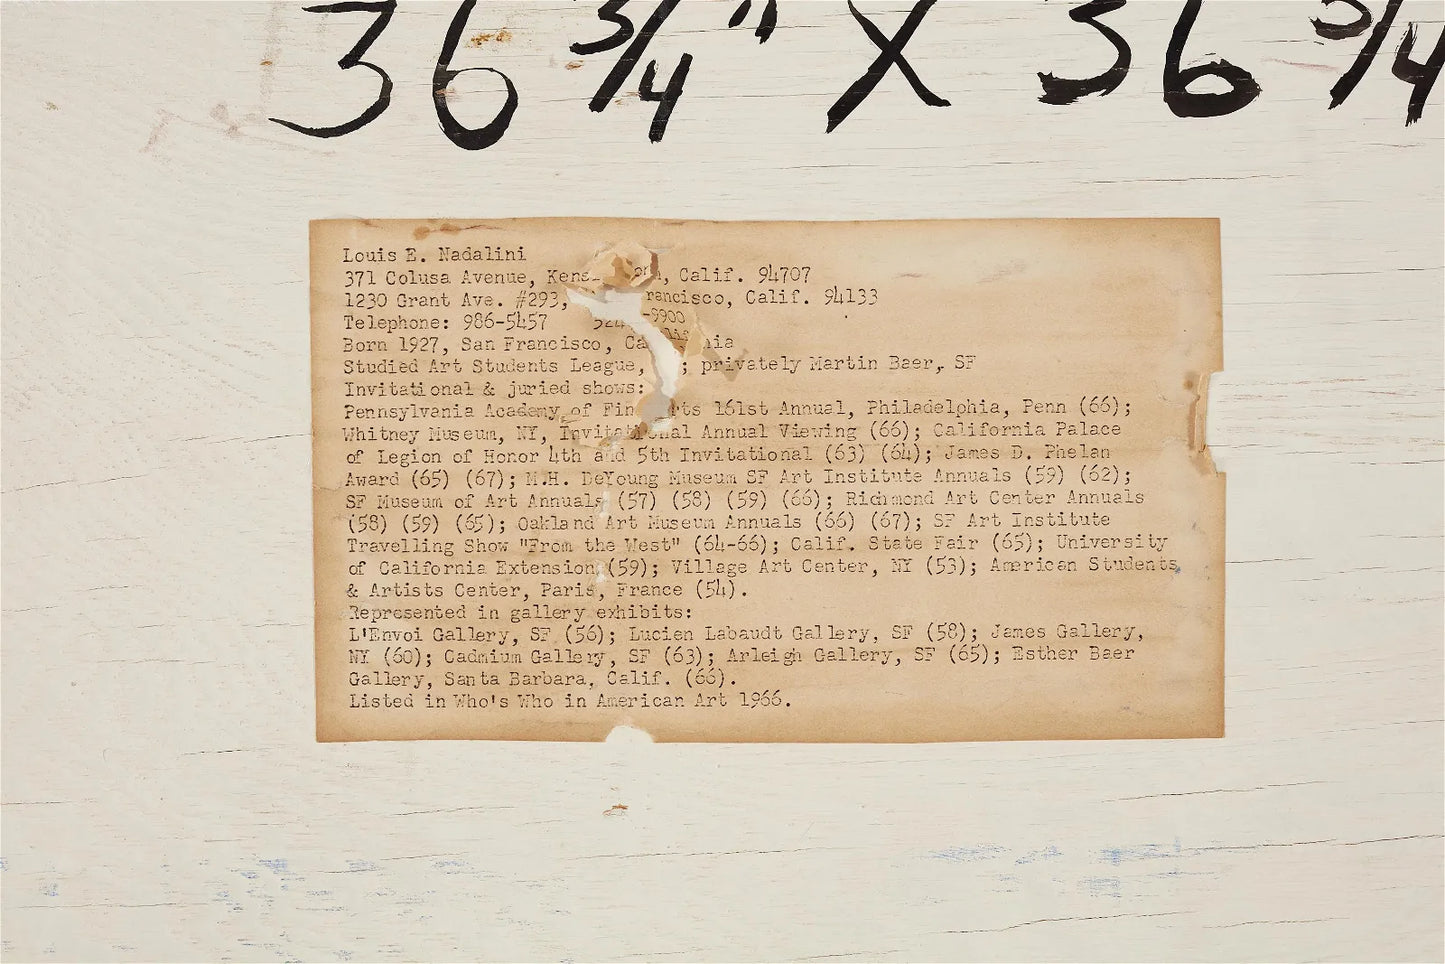 36 3/4" X 36 3/4
Louis E. Nadalini
371 Colusa Avenue, Calif. 94707
1230 Grant Ave. #293, Calif. 94133
Telephone: 986-5457
Born 1927, San Francisco,
Studied Art Students League, ; privately Martin Baer, SF
Invitational & juried shows:
Pennsylvania Academy of 161st Annual, Philadelphia, Penn (66);
Whitney Museum, NY, Invitational Annual Viewing (66); California Palace
of Legion of Honor 4th and 5th Invitational (63) (64); James D. Phelan
Award (65) (67); M.H. DeYoung Museum SF Art Institute Annuals (59) (62);
SF Museum of Art Annuals (57) (58) (59) (66); Richmond Art Center Annuals
(58) (59) (65); Oakland Art Museum Annuals (66) (67); SF Art Institute
Travelling Show "From the West" (64-66); Calif. State Fair (65); University
of California Extension (59); Village Art Center, NY (53); American Students
& Artists Center, Paris, France (54).
Represented in gallery exhibits:
L'Envoi Gallery, SF (56); Lucien Labaudt Gallery, SF (58); James Gallery,
NY (60); Cadmium Gallery, SF (63); Arleigh Gallery, SF (65); Esther Baer
Gallery, Santa Barbara, Calif. (66).
Listed in Who's Who in American Art 1966.